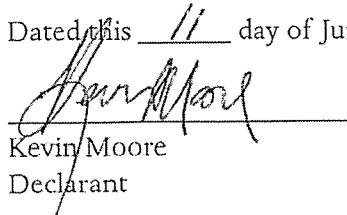 Dated this 11 day of Ju
Kevin Moore
Kevin Moore
Declarant